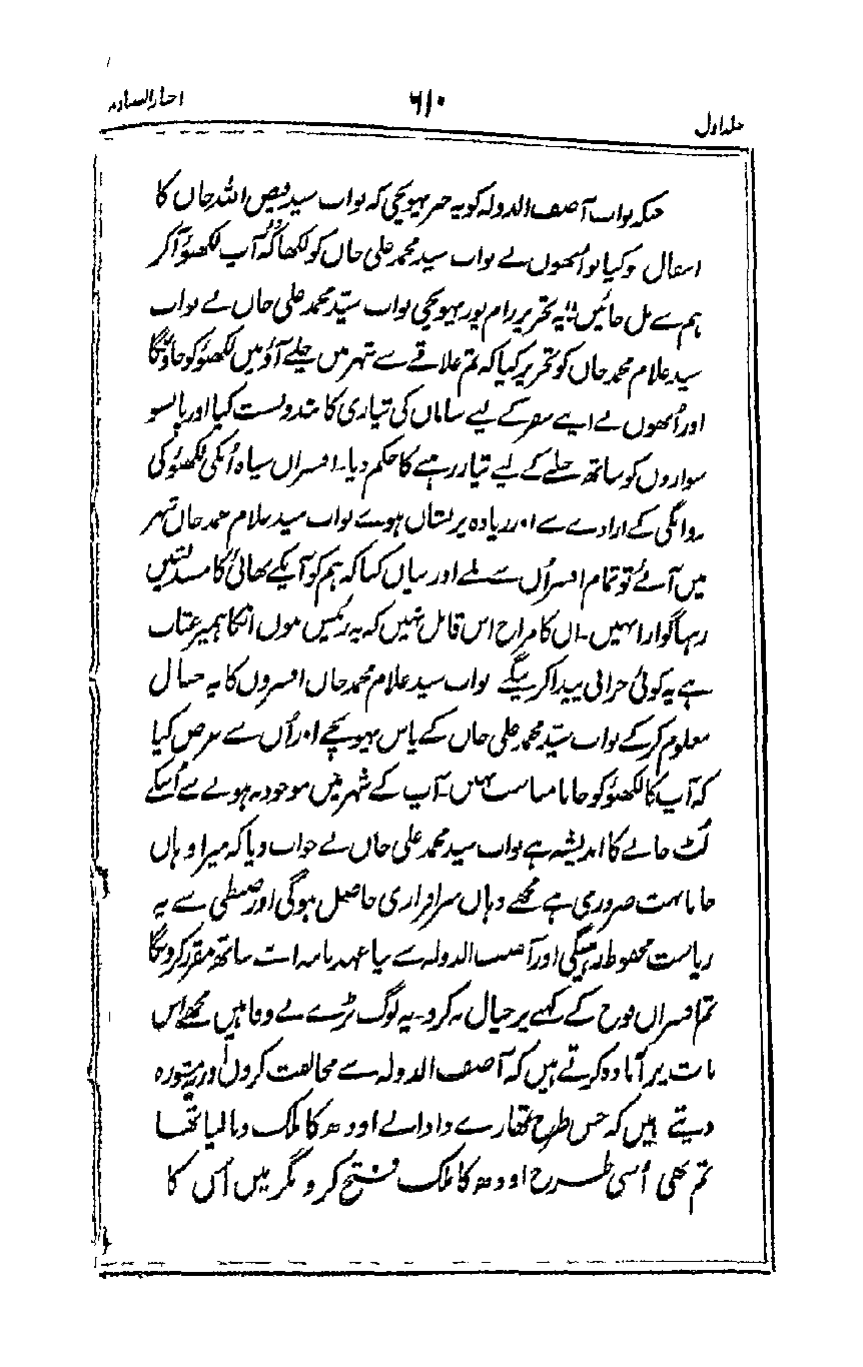 اخبار الصنادید
۶۱۰
جلد اول
جبکہ نواب آصف الدولہ کو یہ خبر پہونچی کہ نواب سید فیض اللہ خاں کا
انتقال ہوگیا تو اُنھوں نے نواب سید محمد علی خاں کو لکھا کہ آپ لکھنؤ آکر
ہم سے مل جائیں یہ تحریر رام پور پہونچی نواب سیّد محمد علی خاں نے نواب
سید غلام محمد خاں کو تحریر کیا کہ تم علاقے سے شہر میں چلے آؤ میں لکھنؤ کو جاؤنگا
اور اُنھوں نے اپنے سفر کے لیے سامان کی تیاری کا بندوبست کیا اور پانسو
سواروں کو ساتھ چلنے کے لیے تیار رہنے کا حکم دیا۔ افسران سپاہ اُنکی لکھنؤ کی
روانگی کے ارادے سے اور زیادہ پریشاں ہوئے نواب سید غلام محمد خاں شہر
میں آئے تو تمام افسراُن سے ملے اور بیاں کیا کہ ہم کو آپکے بھائی کا مسند نشیں
رہنا گوارا نہیں۔ ان کا مزاج اس قابل نہیں کہ یہ رئیس ہوں انکا ہمپر عتاب
ہے یہ کوئی خرابی پیدا کرینگے نواب سید غلام محمد خاں افسروں کا یہ حال
معلوم کرکے نواب سیّد محمد علی خاں کے پاس پہونچے اور اُن سے عرض کیا
کہ آپ کا لکھنؤ کو جانا مناسب نہیں۔ آپ کے شہر میں موجود نہ ہونے سے اُسکے
لُٹ جانے کا اندیشہ ہے نواب سید محمد علی خاں نے جواب دیا کہ میرا وہاں
جانا بہت ضروری ہے مجھے وہاں سرافرازی حاصل ہوگی اور ضبطی سے یہ
ریاست محفوظ رہیگی اور آصف الدولہ سے نیا عہد نامہ اب ساتھ مقرر کرونگا
تم افسران فوج کے کہنے پر خیال نہ کرو۔ یہ لوگ بڑے بے وفا ہیں مجھے اس
بات پر آمادہ کرتے ہیں کہ آصف الدولہ سے مخالفت کروں اور مشورہ
دیتے ہیں کہ جس طرح تمھارے دادا نے اودھ کا ملک دبا لیا تھا
تم بھی اُسی طرح اودھ کا ملک فتح کرو مگر میں اُس کا